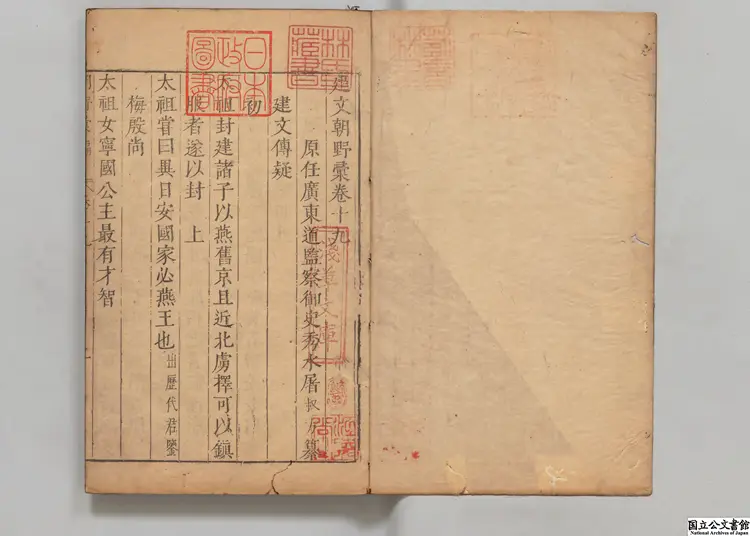 建文朝野彙卷十九
原任廣東道監察御史秀水屠叔方纂
建文傳疑
初
太祖封建諸子以燕舊京且近北虜擇可以鎮
服者遂以封 上
太祖嘗曰異日安國家必燕王也出歷代君鑒
梅殷尚
太祖女寧國公主最有才智
林氏藏書
日本政府圖書
淺草文庫
国立公文書館
National Archives of Japan